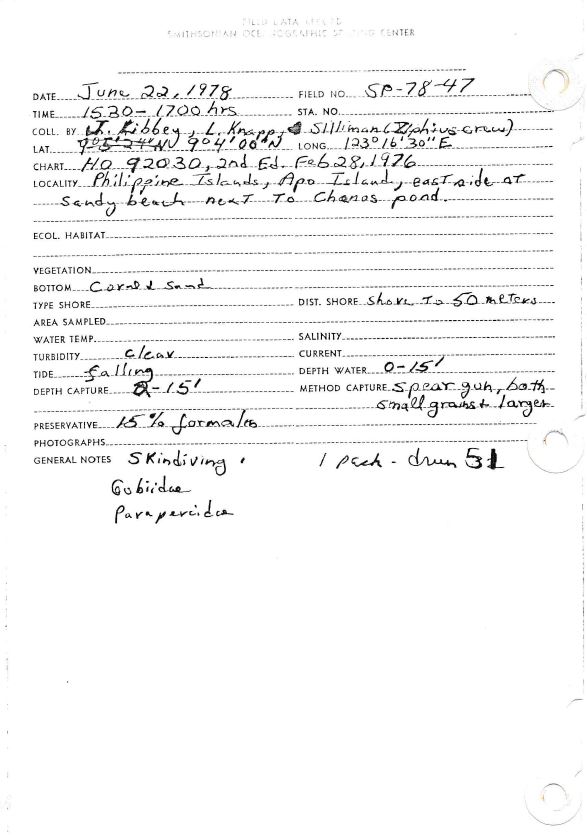 FIELD DATA SHEETS
SMITHSONIAN OCEANOGRAPHIC SORTING CENTER
DATE June 22, 1978 FIELD NO. SP-78-47
TIME 1530-1700 hrs STA. NO.
COLL. BY J. Libbey, L. Knapp, Silliman (Ziphius crew)
LAT. 9°5'24"N 9°4'00"N LONG. 123°16'30"E
CHART HO 92030, 2nd Ed. Feb 28, 1976
LOCALITY Philippine Islands, Apo Island, east side at
Sandy beach next To Chanos pond.
ECOL. HABITAT
VEGETATION
BOTTOM Coral & sand
TYPE SHORE DIST. SHORE Shore To 50 meters
AREA SAMPLED
WATER TEMP. SALINITY
TURBIDITY clear CURRENT
TIDE falling DEPTH WATER 0-15'
DEPTH CAPTURE 2-15' METHOD CAPTURE spear gun, both
small grains & larger
PRESERVATIVE 15% formalin
PHOTOGRAPHS
GENERAL NOTES Skindiving. 1 pack - drum 51
Gobiidae
Parapercidae